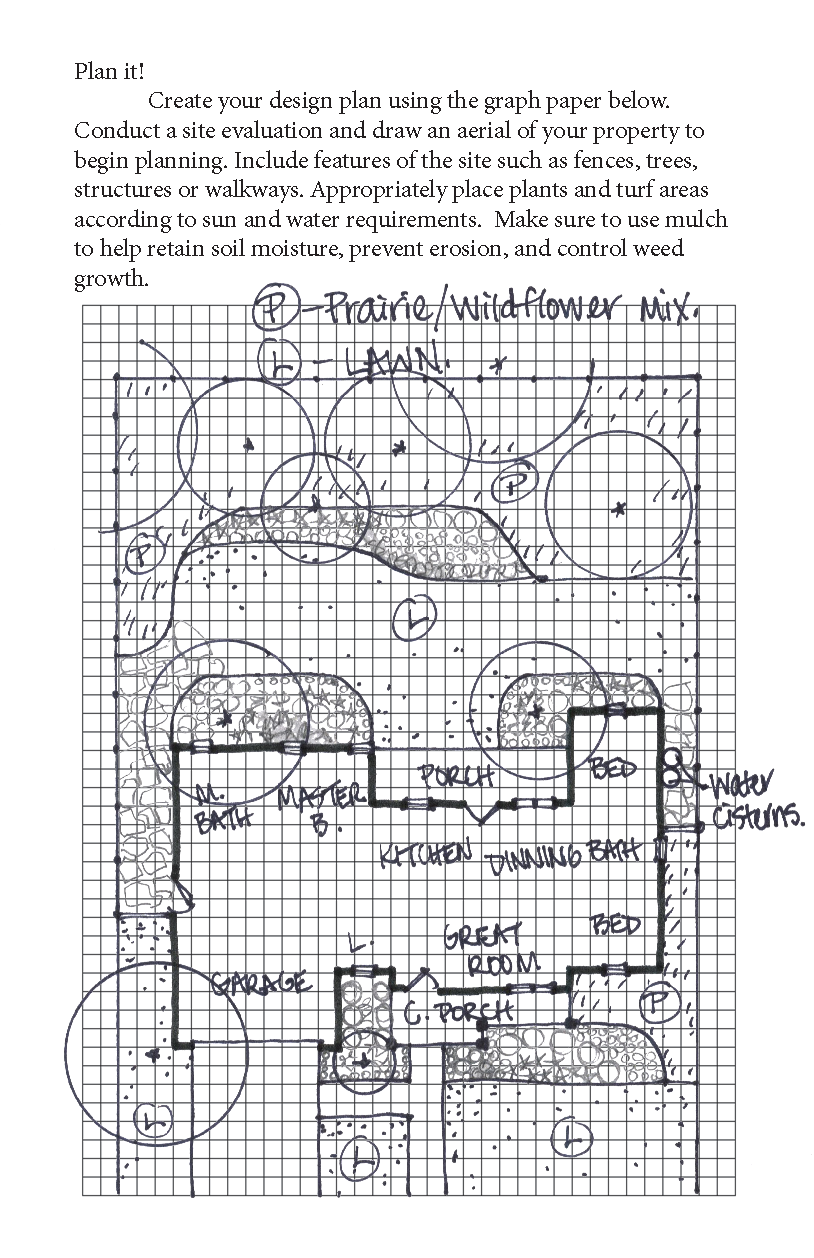 Plan it!
Create your design plan using the graph paper below.
Conduct a site evaluation and draw an aerial of your property to
begin planning. Include features of the site such as fences, trees,
structures or walkways. Appropriately place plants and turf areas
according to sun and water requirements.  Make sure to use mulch
to help retain soil moisture, prevent erosion, and control weed
growth.
P - Prairie/Wildflower Mix.
L - LAWN.
P
P
L
PORCH
BED
M.
BATH
MASTER
B.
Water
Cisterns.
KITCHEN
DINNING
BATH
L.
GREAT
ROOM
BED
GARAGE
C. PORCH
P
L
L
L